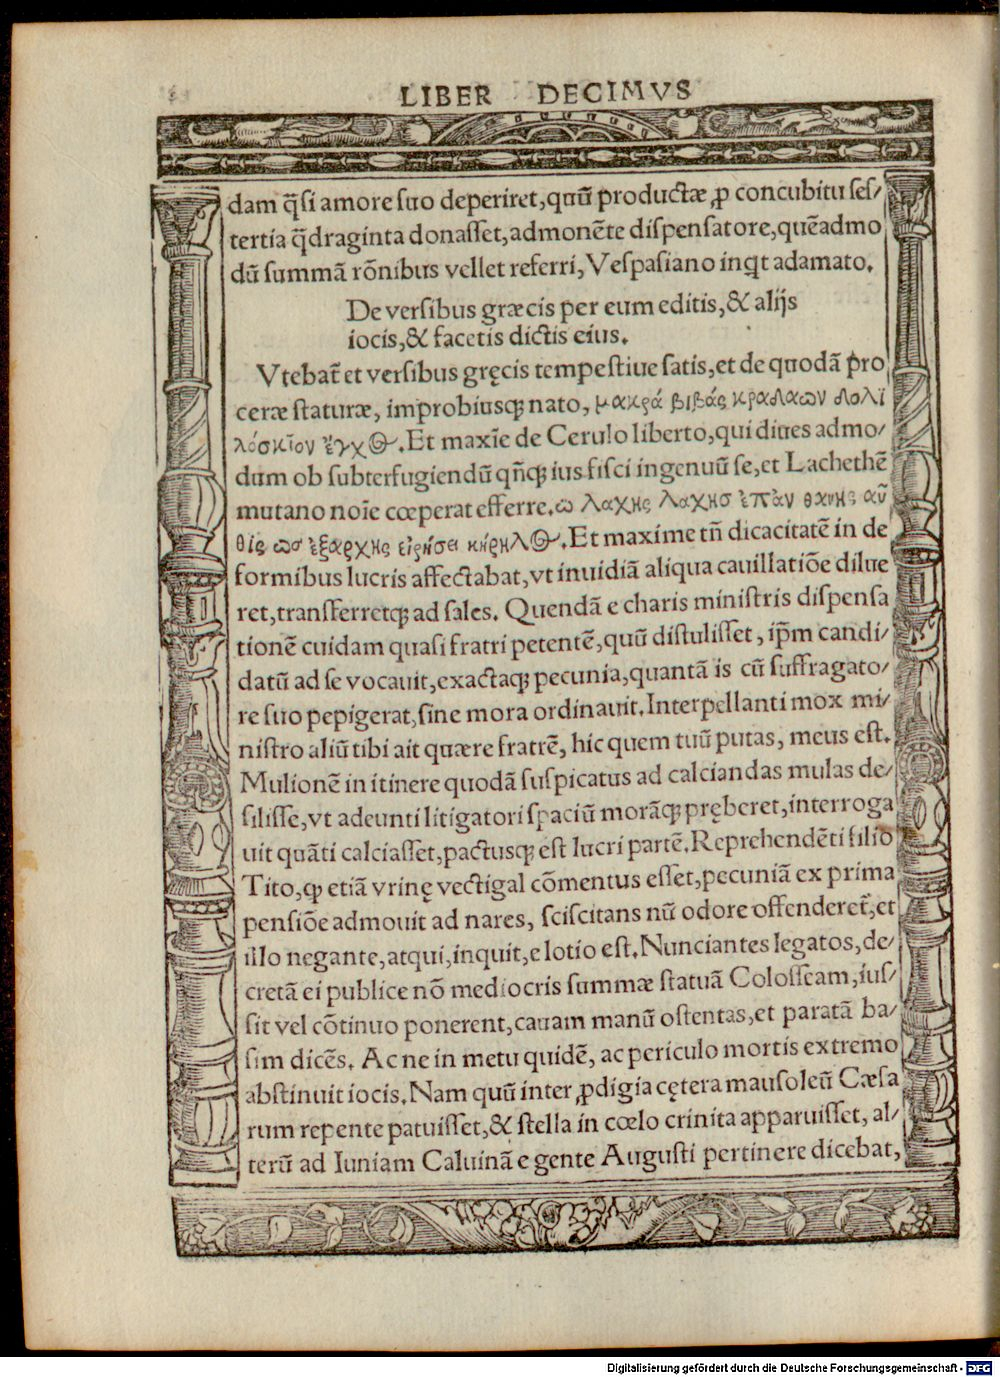 LIBER DECIMVS
dam q̃si amore suo deperiret,quũ productæ ꝓ concubitu ses/
tertia q̃draginta donasset,admonẽte dispensatore,quẽadmo
dũ summã rõnibus vellet referri,Vespasiano inꝗt adamato.
De versibus græcis per eum editis,& alijs
iocis,& facetis dictis eius.
Vtebat̃ et versibus gręcis tempestiue satis,et de quodã pro
ceræ staturæ, improbiusqꝫ nato, μακρά βιβάς κραδαων δολι
λόσκῖον ἔγχος.Et maxĩe de Cerulo liberto,qui diues admo/
dum ob subterfugiendũ qñqꝫ ius fisci ingenuũ se,et Lachethẽ
mutano noĩe cœperat efferre.ω λαχης λαχησ ἐπὰν θανης αὖ
θις ωσ ἐξαρχης εἰρήσει κήρηλος.Et maxime tñ dicacitatẽ in de
formibus lucris affectabat,vt inuidiã aliqua cauillatiõe dilue
ret,transferretqꝫ ad sales. Quendã e charis ministris dispensa
tionẽ cuidam quasi fratri petentẽ,quũ distulisset, ip̃m candi/
datũ ad se vocauit,exactaqꝫ pecunia,quantã is cũ suffragato/
re suo pepigerat,sine mora ordinauit.Interpellanti mox mi/
nistro aliũ tibi ait quære fratrẽ, hic quem tuũ putas, meus est.
Mulionẽ in itinere quodã suspicatus ad calciandas mulas de/
silisse,vt adeunti litigatori spaciũ morãqꝫ pręberet,interroga
uit quãti calciasset,pactusqꝫ est lucri partẽ.Reprehendẽti filio
Tito,ꝙ etiã vrinę vectigal cõmentus esset,pecuniã ex prima
pensiõe admouit ad nares, sciscitans nũ odore offenderet̃,et
illo negante,atqui,inquit,e lotio est.Nunciantes legatos,de/
cretã ei publice nõ mediocris summæ statuã Colosseam,ius/
sit vel cõtinuo ponerent,cauam manũ ostentas,et paratã ba/
sim dicẽs. Ac ne in metu quidẽ, ac periculo mortis extremo
abstinuit iocis.Nam quũ inter ꝓdigia cętera mausoleũ Cæsa
rum repente patuisset,& stella in cœlo crinita apparuisset, al/
terũ ad Iuniam Caluinã e gente Augusti pertinere dicebat,
Digitalisierung gefördert durch die Deutsche Forschungsgemeinschaft - DFG